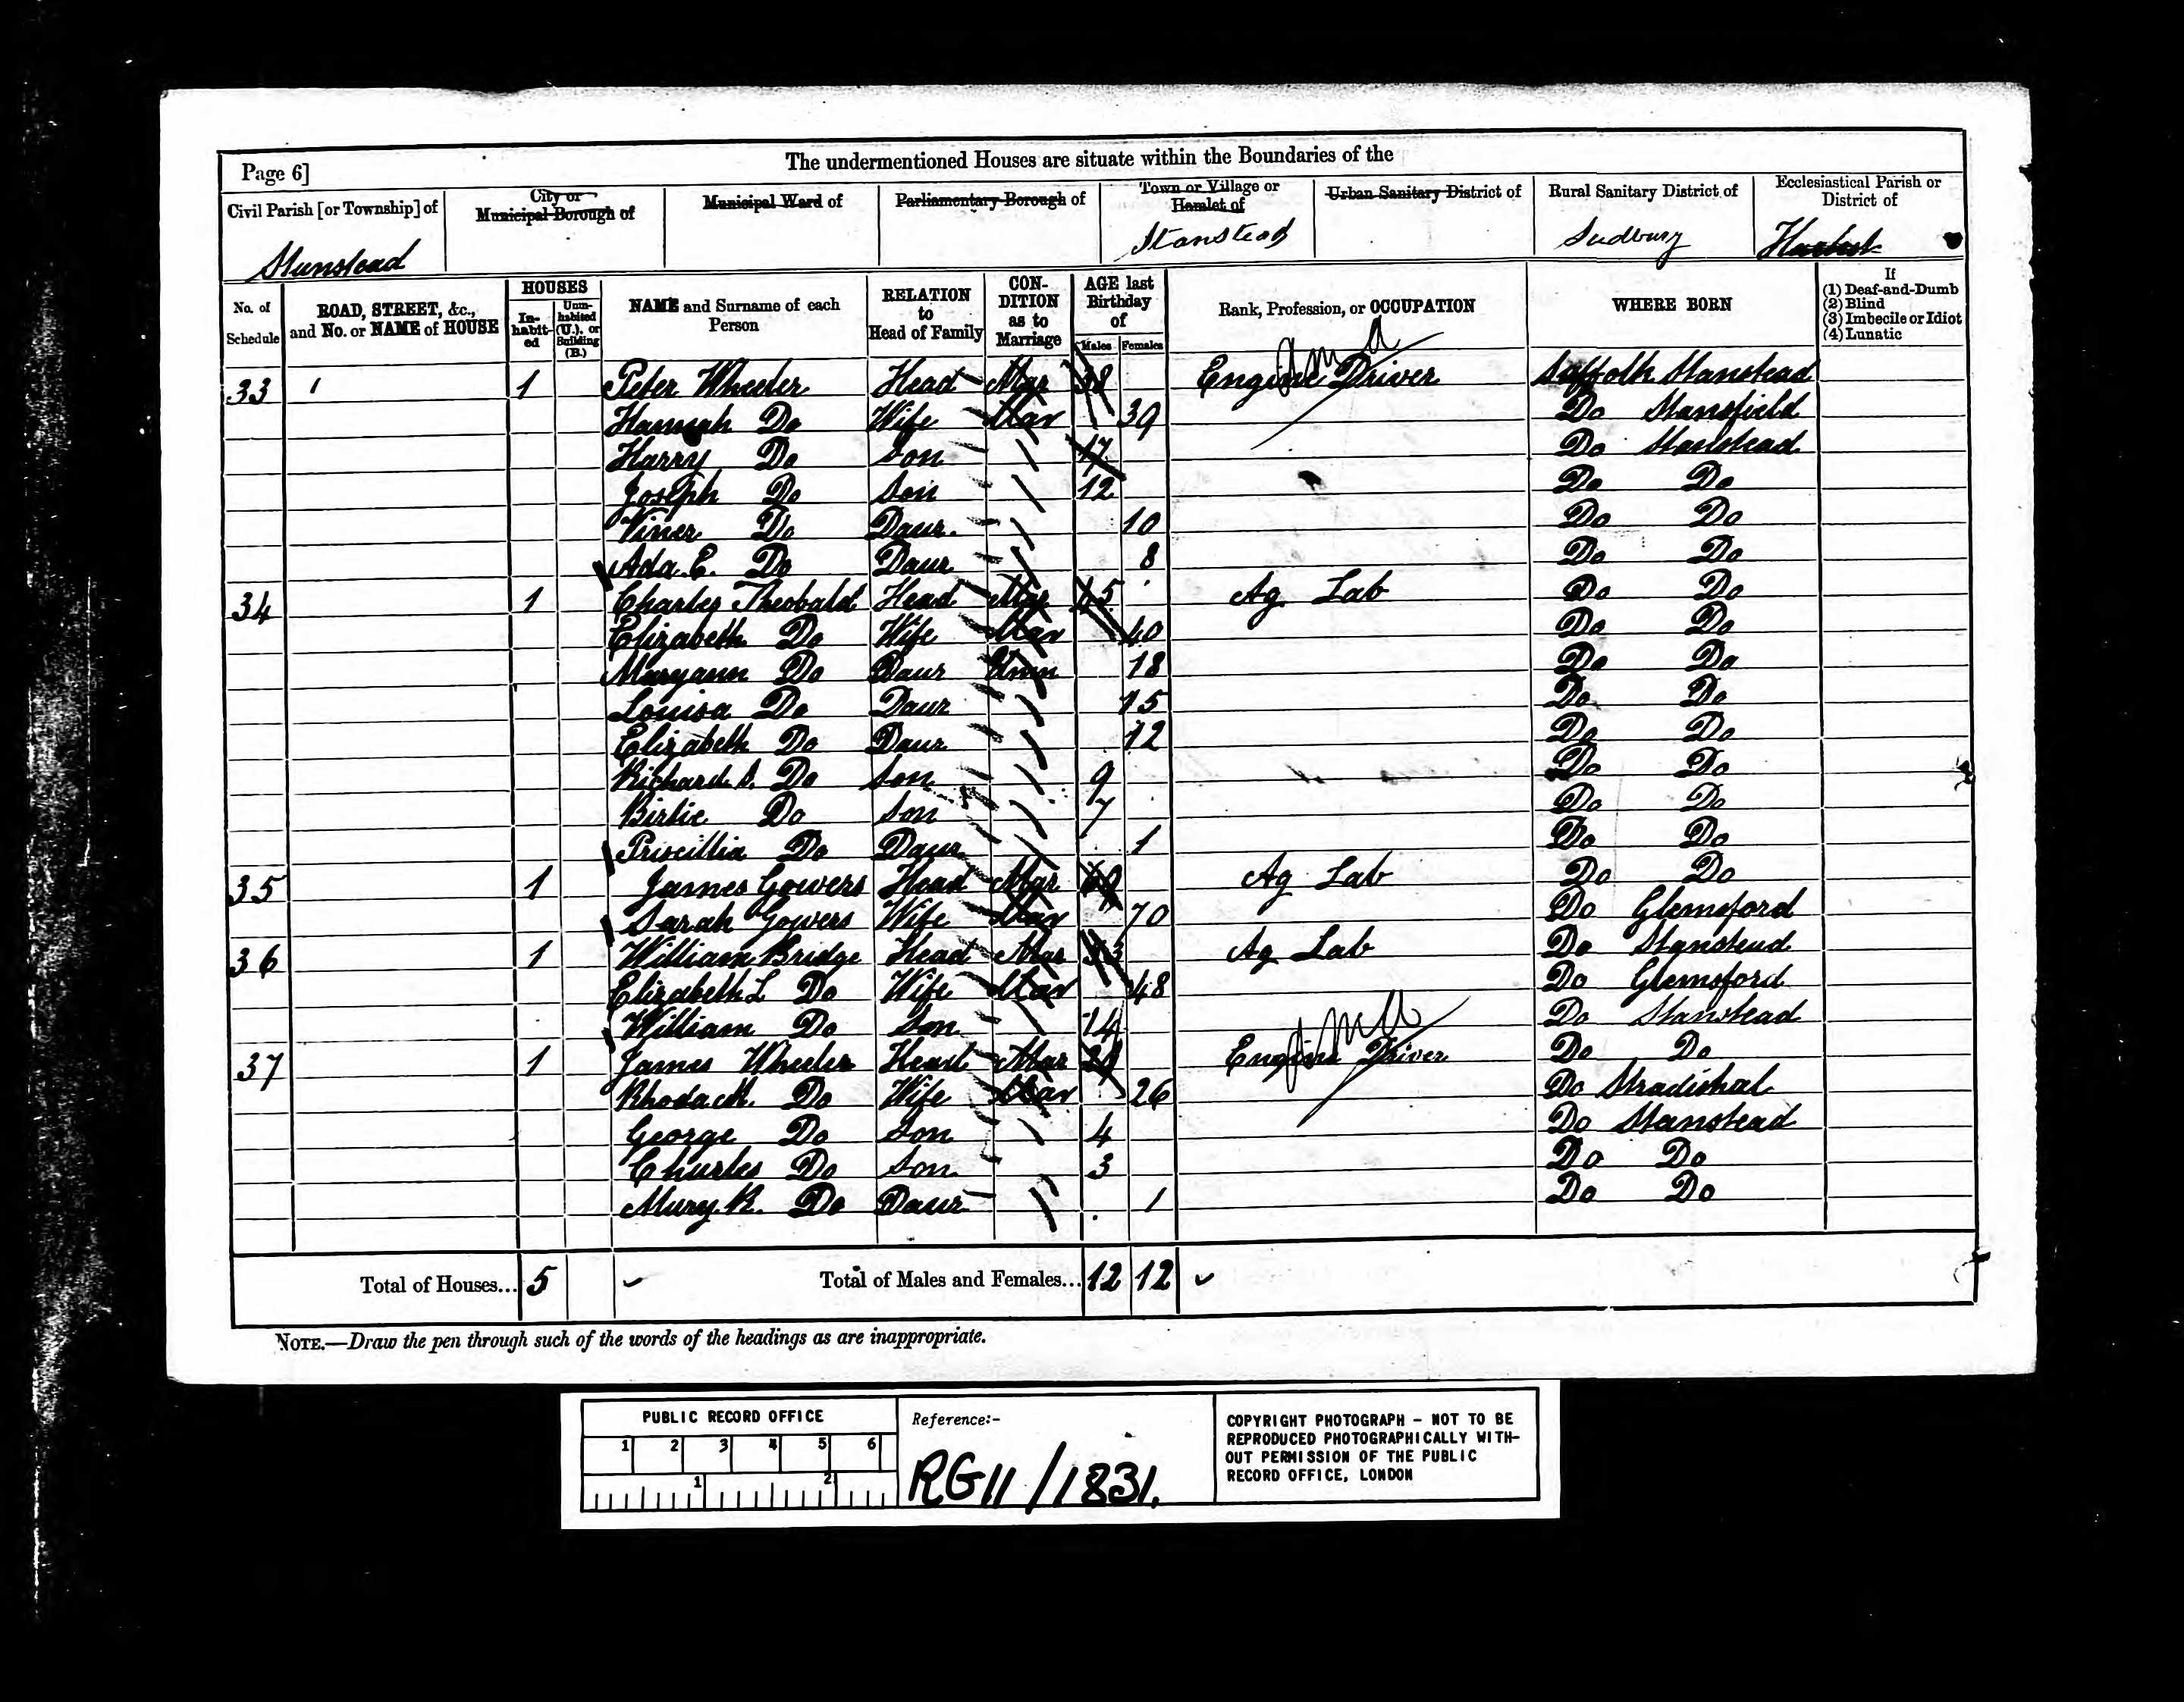 Page 6]
The undermentioned Houses are situate within the Boundaries of the
Civil Parish [or Township] of
City or Municipal Borough of
Municipal Ward of
Parliamentary Borough of
Town or Village or Hamlet of
Urban Sanitary District of
Rural Sanitary District of
Ecclesiastical Parish or District of
Stanstead Stanstead Sudbury
No. of Schedule
ROAD, STREET, &c., and No. or NAME of HOUSE
HOUSES
In-habit-ed
Unin-habited (U.), or Building (B.)
NAME and Surname of each Person
RELATION to Head of Family
CON-DITION as to Marriage
AGE last Birthday of
Males Females
Rank, Profession, or OCCUPATION
WHERE BORN
If
(1) Deaf-and-Dumb
(2) Blind
(3) Imbecile or Idiot
(4) Lunatic
33 1 Peter Wheeler Head Mar 38 Engine Driver Suffolk Stanstead
Hannah Do Wife Mar 39 Do Stansfield
Harry Do Son 17 Do Stanstead
Joseph Do Son 12 Do Do
Viner Do Daur. 10 Do Do
Ada E. Do Daur 8 Do Do
34 1 Charles Theobald Head Mar 45 Ag Lab Do Do
Elizabeth Do Wife Mar 40 Do Do
Maryann Do Daur Unm 18 Do Do
Louisa Do Daur 15 Do Do
Elizabeth Do Daur 12 Do Do
Richard S. Do Son 9 Do Do
Birtie Do Son 7 Do Do
Priscillia Do Daur 1 Do Do
35 1 James Gowers Head Mar Ag Lab Do Do
Sarah Gowers Wife Mar 70 Do Glemsford
36 1 William Bridge Head Mar 53 Ag Lab Do Stanstead
Elizabeth L Do Wife Mar 48 Do Glemsford
William Do Son 14 Do Stanstead
37 1 James Wheeler Head Mar Engine Driver Do Do
Rhoda M. Do Wife Mar 26 Do Stradishal
George Do Son 4 Do Stanstead
Charles Do Son 3 Do Do
Mary R. Do Daur 1 Do Do
Total of Houses... 5 Total of Males and Females... 12 12
NOTE.—Draw the pen through such of the words of the headings as are inappropriate.
PUBLIC RECORD OFFICE
1 2 3 4 5 6
1 2
Reference:-
RG11/1831.
COPYRIGHT PHOTOGRAPH - NOT TO BE
REPRODUCED PHOTOGRAPHICALLY WITH-
OUT PERMISSION OF THE PUBLIC
RECORD OFFICE, LONDON